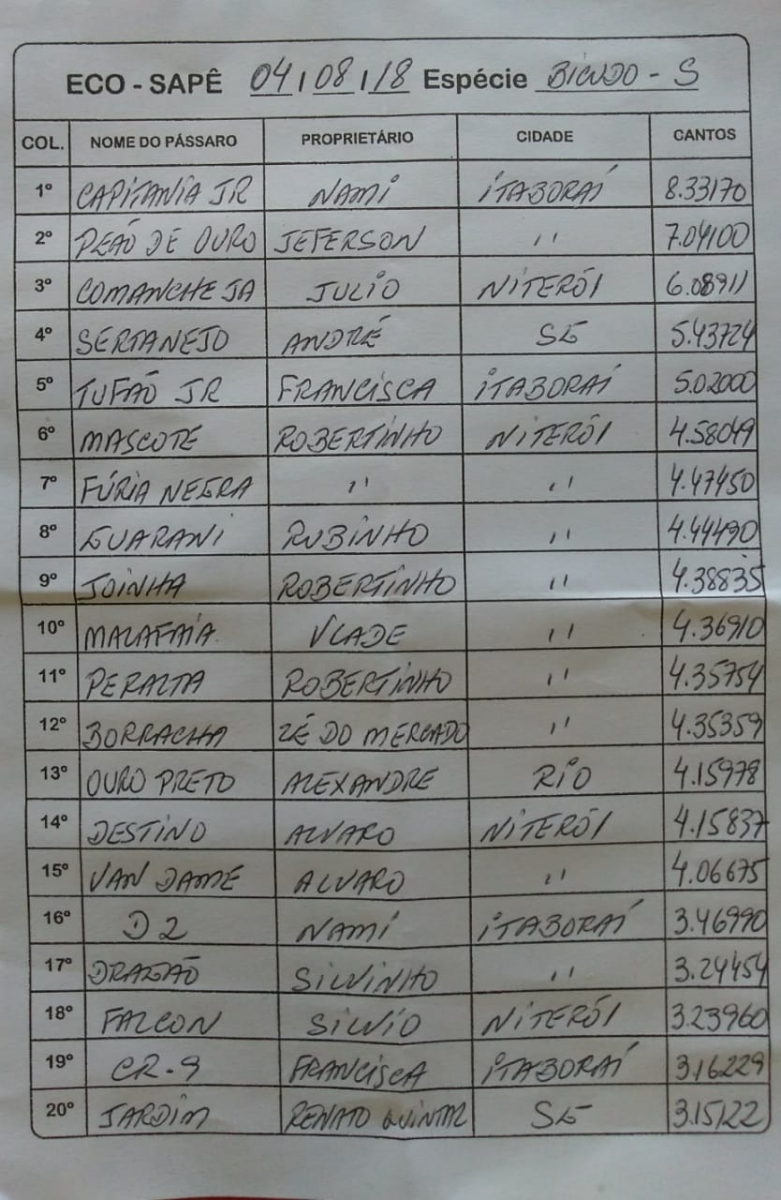 ECO - SAPÊ 04/08/18 Espécie BICUDO - S
COL. NOME DO PÁSSARO PROPRIETÁRIO CIDADE CANTOS
1º CAPITANIA JR NAMI ITABORAÍ 8.33170
2º PEÃO DE OURO JEFERSON '' 7.04100
3º COMANCHE JA JULIO NITERÓI 6.08911
4º SERTANEJO ANDRÉ SG 5.43724
5º TUFÃO JR FRANCISCA ITABORAÍ 5.02000
6º MASCOTE ROBERTINHO NITERÓI 4.58049
7º FÚRIA NEGRA '' '' 4.47450
8º GUARANI RUBINHO '' 4.44490
9º JOINHA ROBERTINHO '' 4.38835
10º MALAFAIA VLADE '' 4.36910
11º PERALTA ROBERTINHO '' 4.35754
12º BORRACHA ZÉ DO MERCADO '' 4.35359
13º OURO PRETO ALEXANDRE RIO 4.15978
14º DESTINO ALVARO NITERÓI 4.15837
15º VAN DAME ALVARO '' 4.06675
16º D2 NAMI ITABORAÍ 3.46990
17º DRAGÃO SILVINHO '' 3.24454
18º FALCON SILVIO NITERÓI 3.23960
19º CR-9 FRANCISCA ITABORAÍ 3.16229
20º JARDIM RENATO SG 3.15122